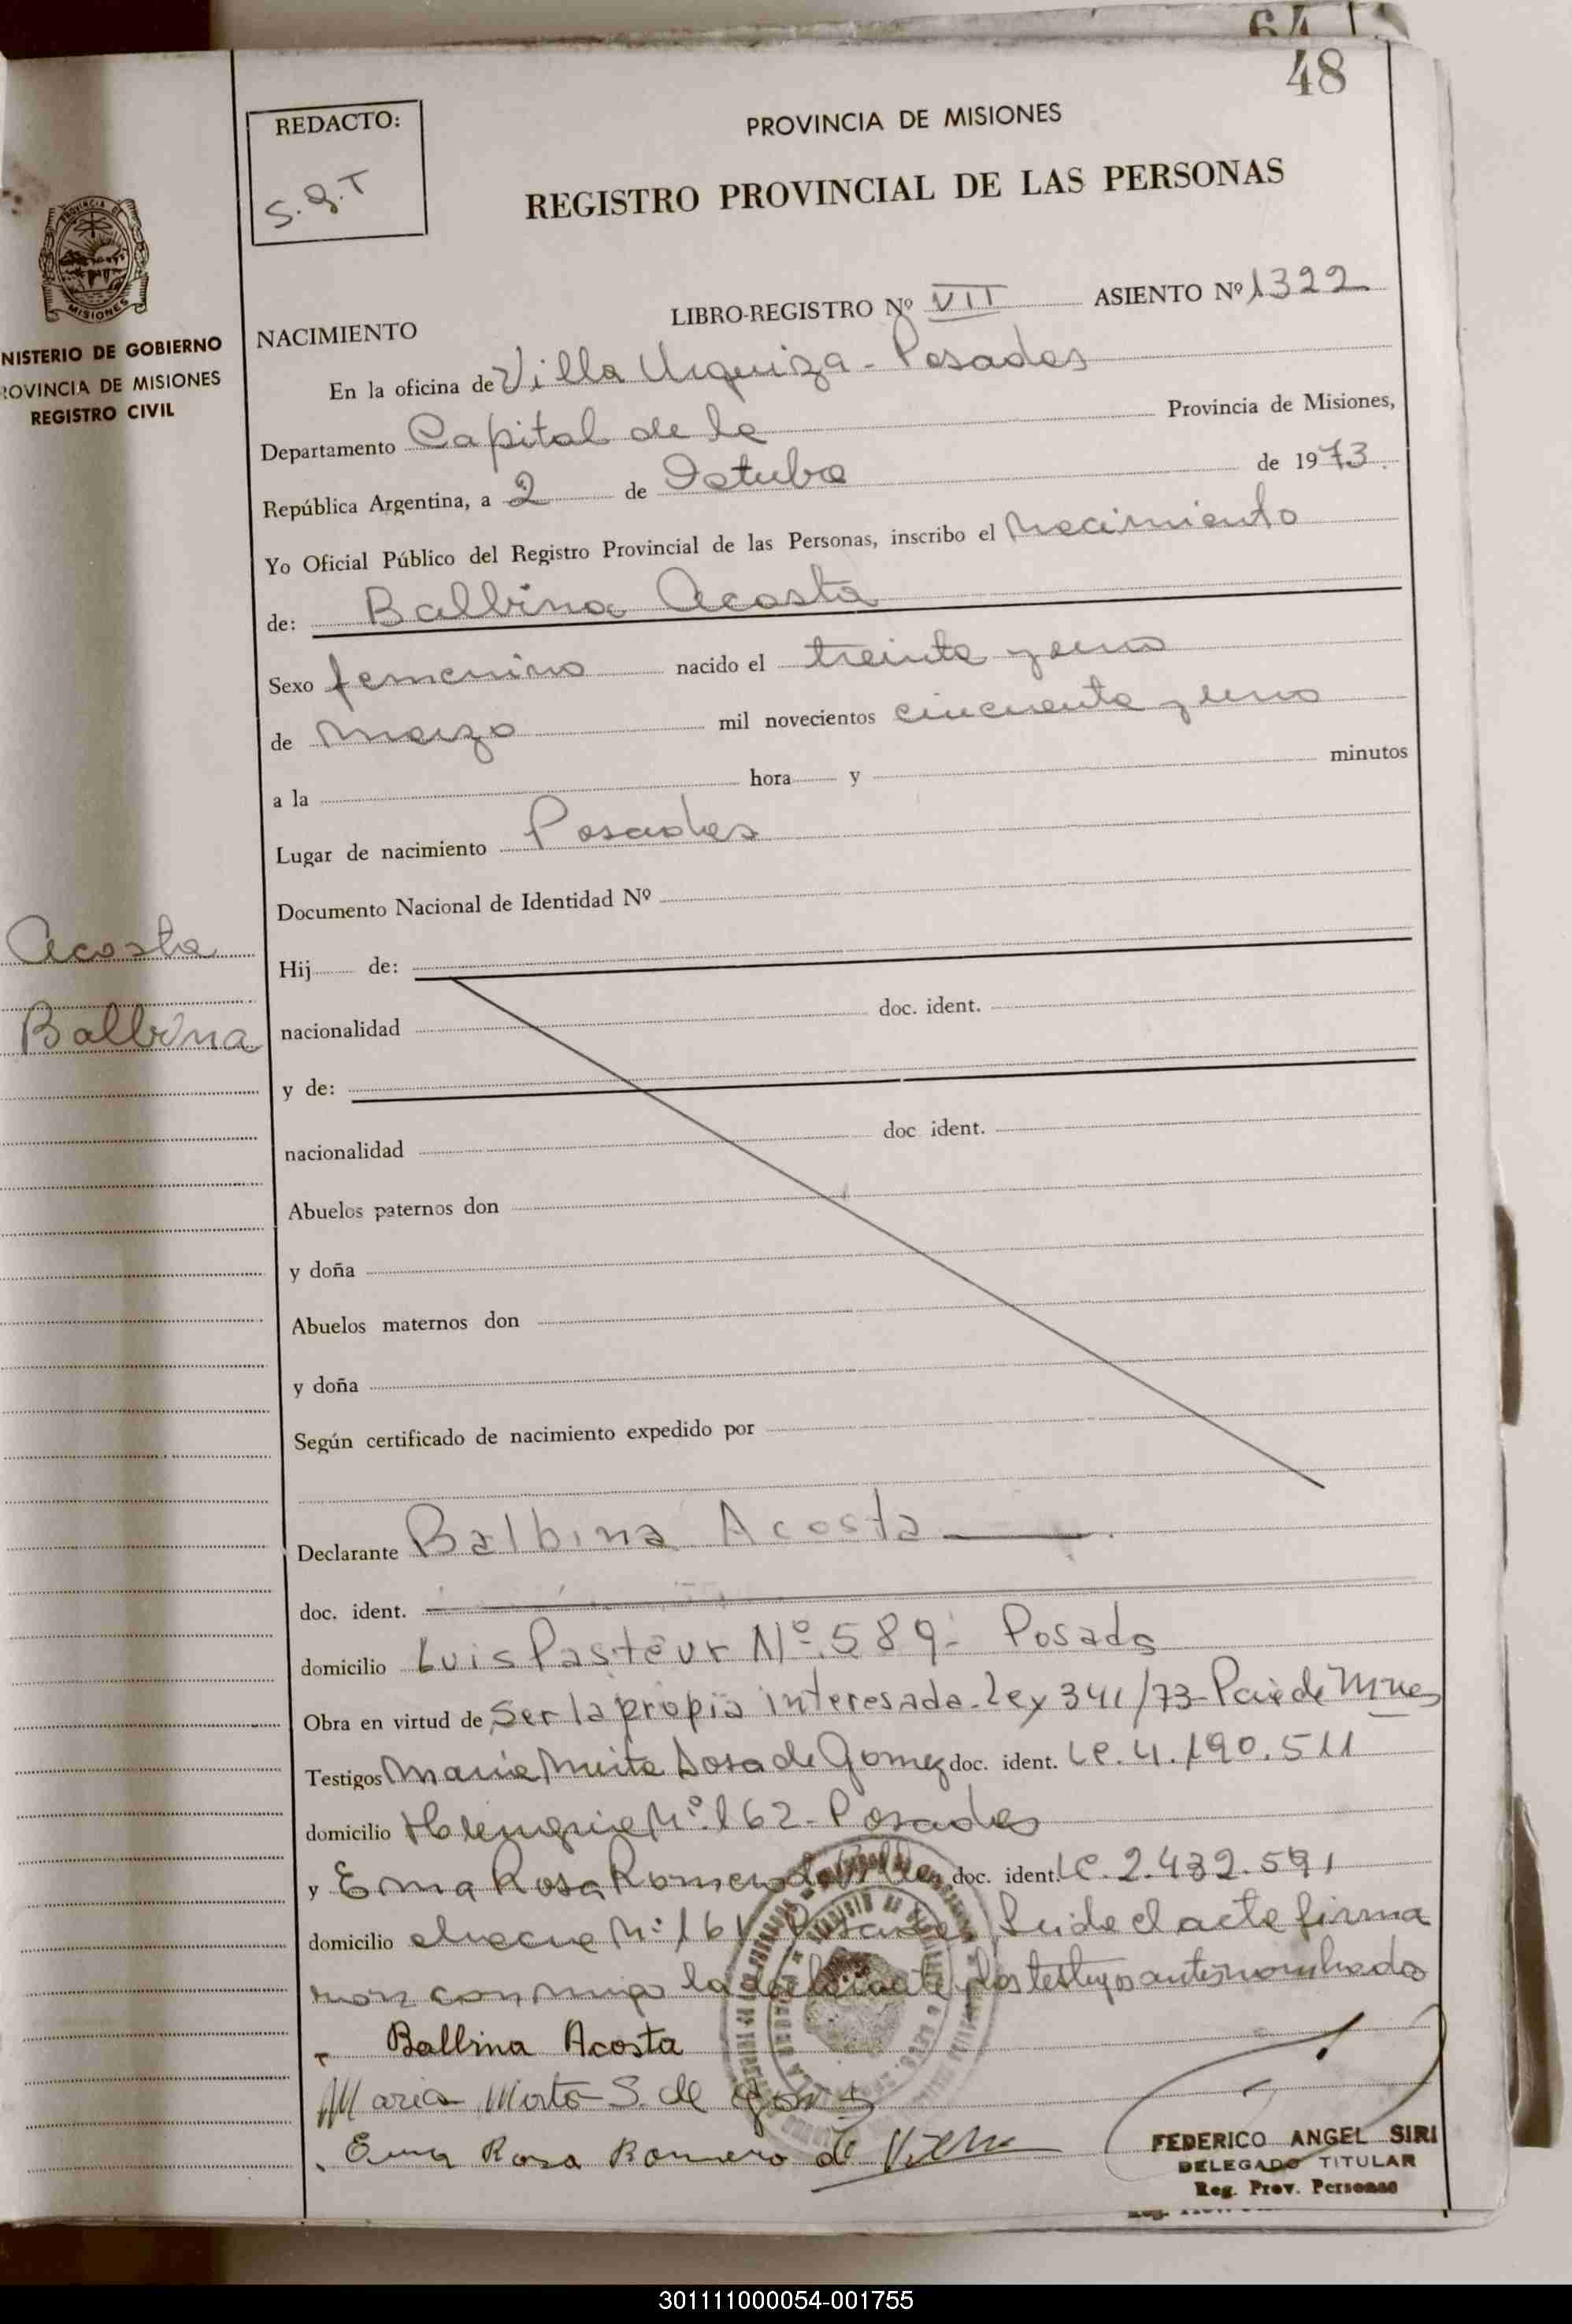 64
48
REDACTO:
S.G.T
PROVINCIA DE MISIONES
REGISTRO PROVINCIAL DE LAS PERSONAS
PROVINCIA DE
MISIONES
NISTERIO DE GOBIERNO
ROVINCIA DE MISIONES
REGISTRO CIVIL
LIBRO-REGISTRO Nº VII ASIENTO Nº 1322
NACIMIENTO
En la oficina de Villa Urquiza - Posadas
Departamento Capital de la Provincia de Misiones,
República Argentina, a 2 de Octubre de 1973.
Yo Oficial Público del Registro Provincial de las Personas, inscribo el nacimiento
de: Balbina Acosta
Sexo femenino nacido el treinta y uno
de marzo mil novecientos cincuenta y uno
a la hora y minutos
Lugar de nacimiento Posadas
Documento Nacional de Identidad Nº
Acosta
Balbina
Hij de:
nacionalidad doc. ident.
y de:
nacionalidad doc. ident.
Abuelos paternos don
y doña
Abuelos maternos don
y doña
Según certificado de nacimiento expedido por
Declarante Balbina Acosta
doc. ident.
domicilio Luis Pasteur Nº 589- Posadas
Obra en virtud de Ser la propia interesada. Ley 341/73- Pcia de Mnes
Testigos Maria Mirta Sosa de Gomez doc. ident. LC. 4.190.511
domicilio Nº 162- Posadas
y Ema Rosa Romero de doc. ident. LC. 2.432.591
domicilio Nº 161 Posadas Leida el acta firma
ron conmigo la declarante y los testigos antes nombrados
Balbina Acosta
Maria Mirta S. de Gomez
Ema Rosa Romero de
FEDERICO ANGEL SIRI
DELEGADO TITULAR
Reg. Prov. Personas
301111000054-001755